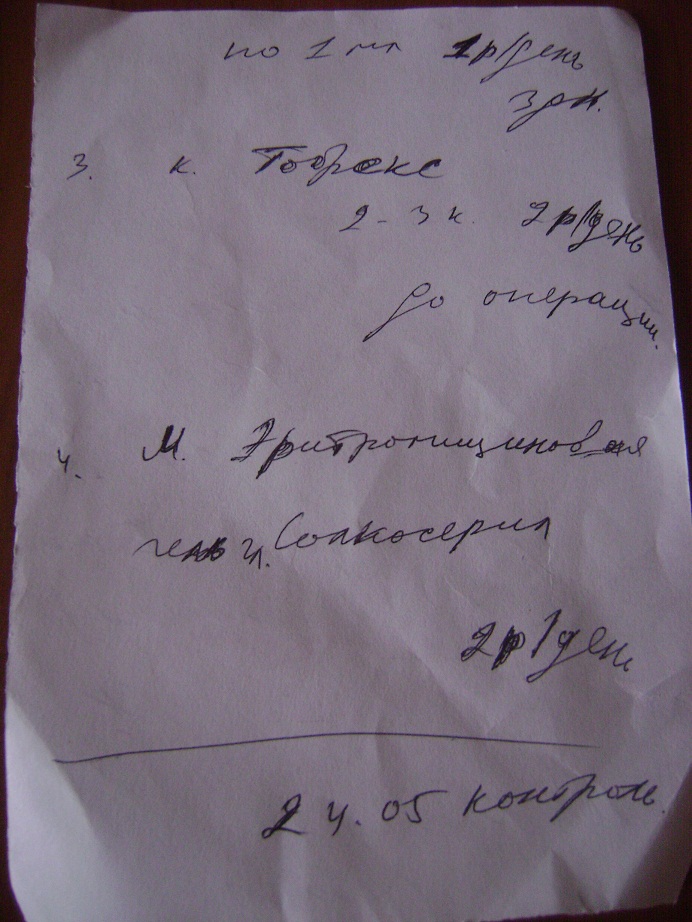 по 1 мл 1р/день
3 дн.
3. к. Тобрекс
2-3 к. 2р/день
до операции.
4. М. Эритромициновая
гель гл. Солкосерил
2р/день
24.05 контроль.